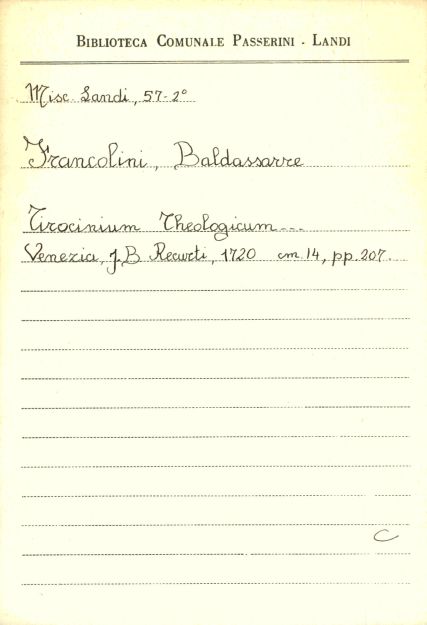 BIBLIOTECA COMUNALE PASSERINI - LANDI
Misc. Landi, 57-2°
Francolini, Baldassarre
Tirocinium Theologicum---
Venezia, J.B Recurti, 1720 cm. 14, pp. 207.
C